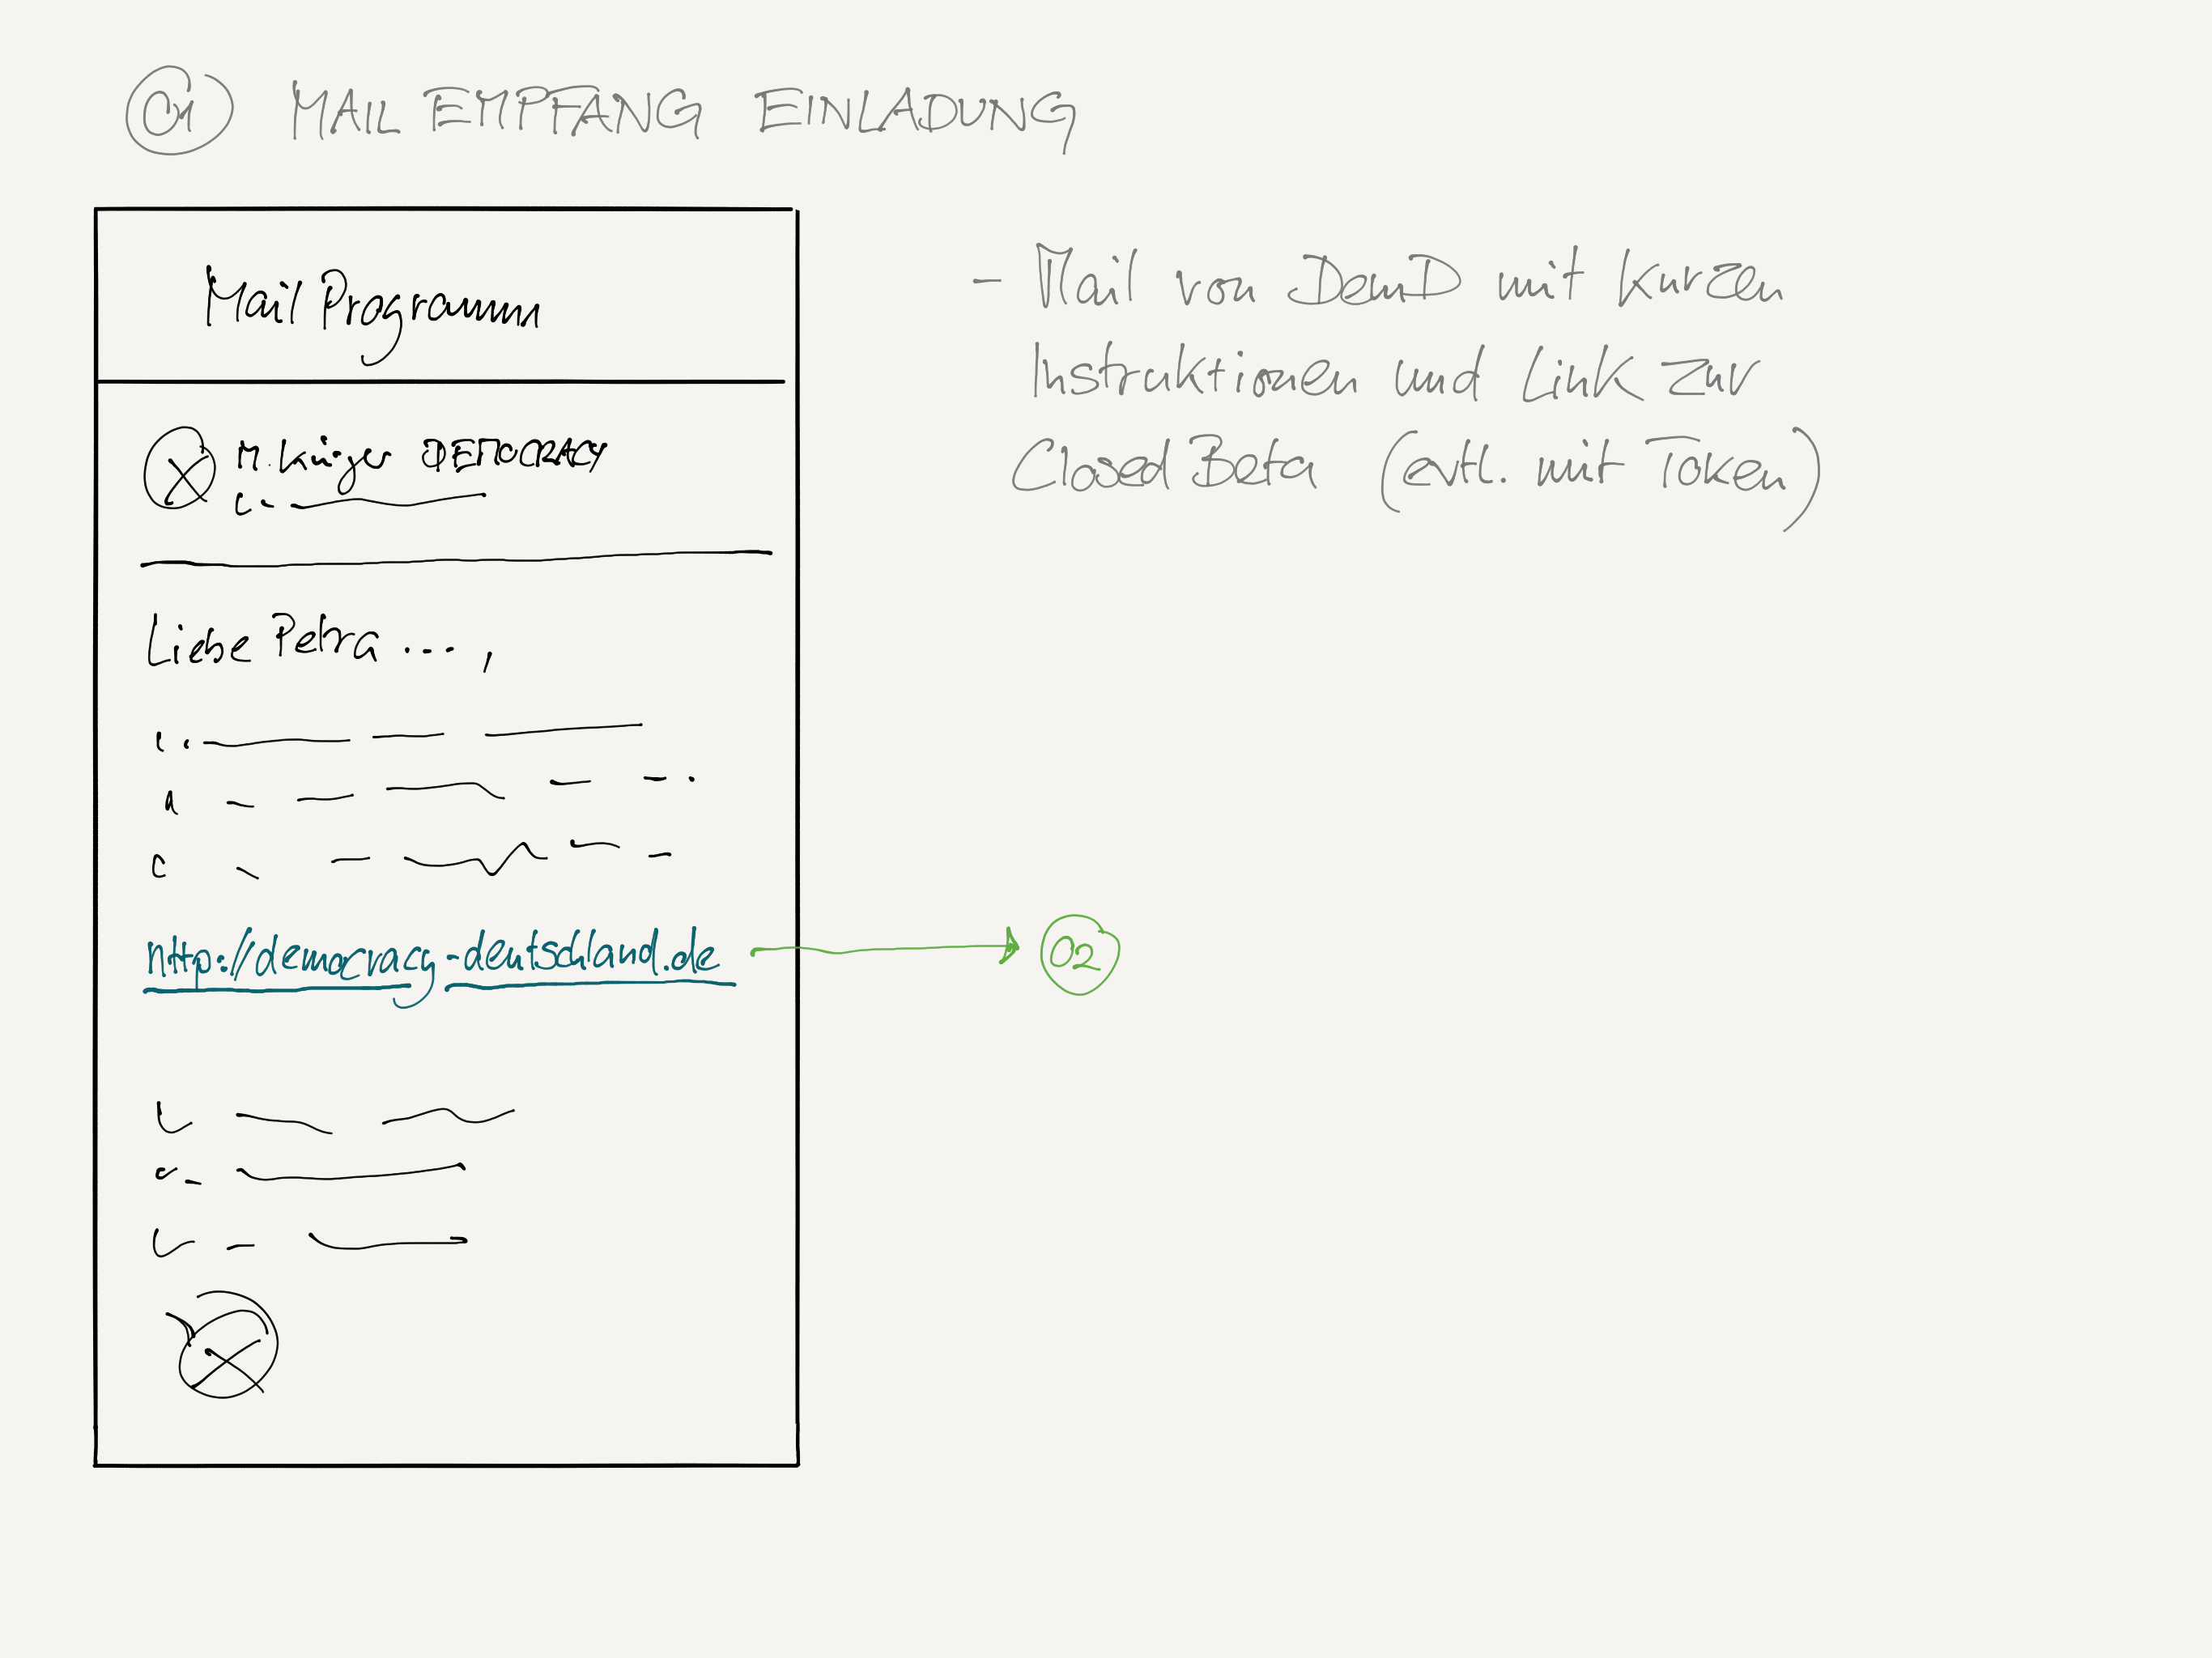 01 MAIL EMPFANG EINLADUNG
Mail Programm
M. DEMOCRACY
Liebe Petra ...,
http://democracy-deutschland.de
02
- Mail von DemD mit kurzen
Instruktionen und Link zur
Closed Beta (evtl. mit Token)